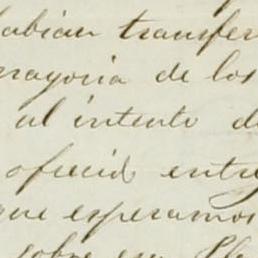 habian transfer
mayoria de los
al intento d
ofreció entre
que esperamos
sobre esa